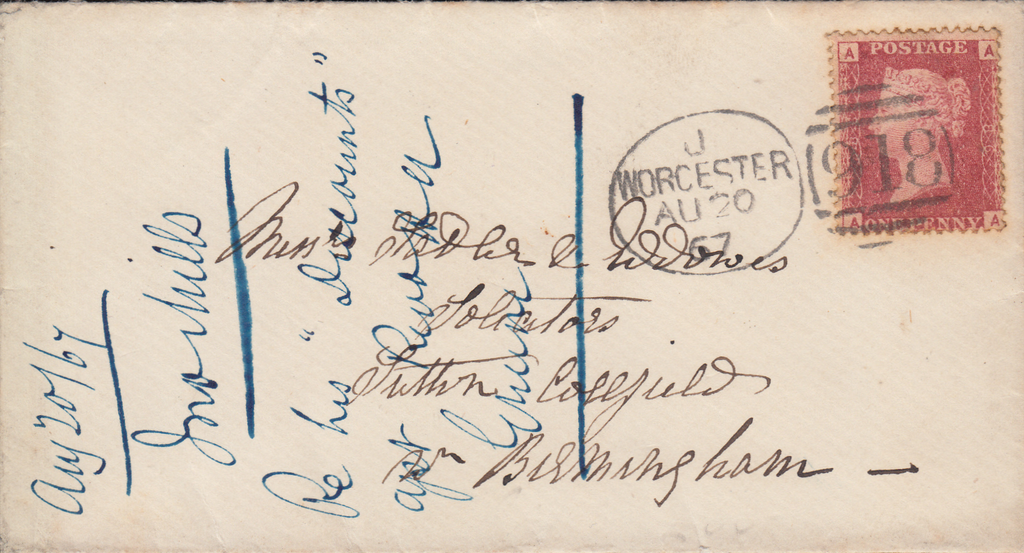 A POSTAGE A
A ONE PENNY A
918
J
WORCESTER
AU 20
67
Messrs & 
Solicitors
Sutton Colefield
nr Birmingham
Aug 20/67
Jno Mills
Re his "Discounts"
agt